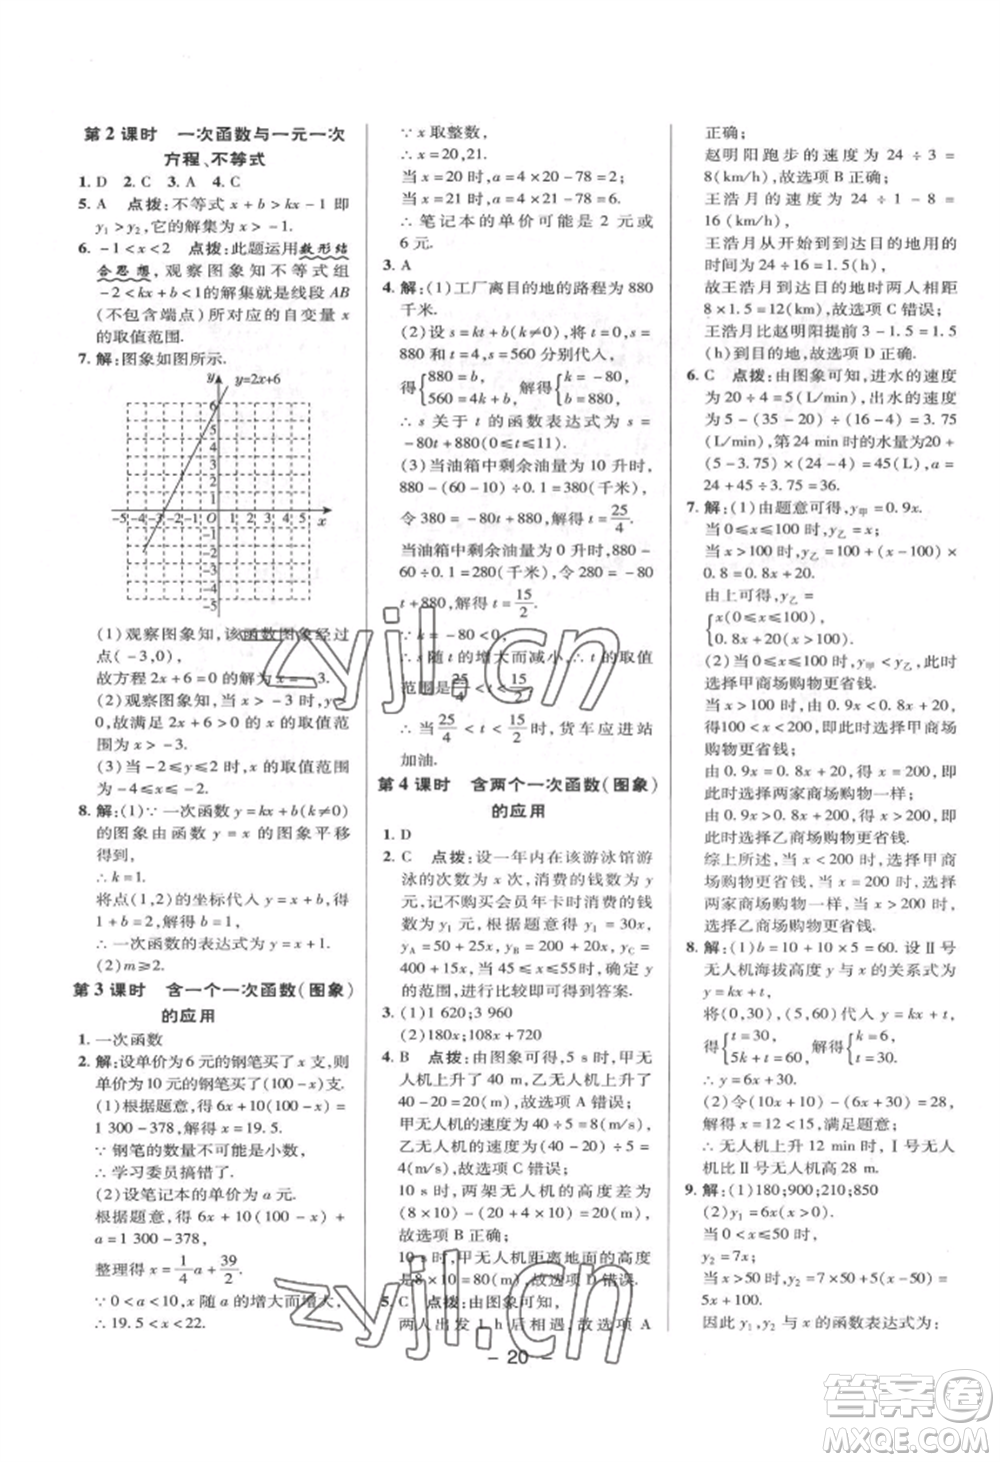 第2课时　一次函数与一元一次
方程、不等式
1. D　2. C　3. A　4. C
5. A　点拨:不等式 x+b>kx-1 即
y₁>y₂,它的解集为 x>-1.
6. -1<x<2　点拨:此题运用数形结
合思想,观察图象知不等式组
-2<kx+b<1 的解集就是线段 AB
(不包含端点)所对应的自变量 x
的取值范围.
7. 解:图象如图所示.
y
y=2x+6
6
5
4
3
2
1
-5 -4 -3 -2 -1 O 1 2 3 4 5 x
-1
-2
-3
-4
-5
(1)观察图象知,该函数图象经过
点(-3,0),
故方程 2x+6=0 的解为 x=-3.
(2)观察图象知,当 x>-3 时,y>
0,故满足 2x+6>0 的 x 的取值范
围为 x>-3.
(3)当-2≤y≤2 时,x 的取值范围为
-4≤x≤-2.
8. 解:(1)∵ 一次函数 y=kx+b(k≠0)
的图象由函数 y=x 的图象平移
得到,
∴ k=1.
将点(1,2)的坐标代入 y=x+b,得
1+b=2,解得 b=1.
∴ 一次函数的表达式为 y=x+1.
(2)m≥2.
第3课时　含一个一次函数(图象)
的应用
1. 一次函数
2. 解:设单价为 6 元的钢笔买了 x 支,则
单价为 10 元的钢笔买了(100-x)支.
(1)根据题意,得 6x+10(100-x)=
1 300-378,解得 x=19.5.
∵ 钢笔的数量不可能是小数,
∴ 学习委员搞错了.
(2)设笔记本的单价为 a 元.
根据题意,得 6x+10(100-x)+
a=1 300-378,
整理得 x=1/4 a+39/2.
∵ 0<a<10,x 随 a 的增大而增大,
∴ 19.5<x<22.
∵ x 取整数,
∴ x=20,21.
当 x=20 时,a=4×20-78=2;
当 x=21 时,a=4×21-78=6.
∴ 笔记本的单价可能是 2 元或
6 元.
3. A
4. 解:(1)工厂离目的地的路程为 880
千米.
(2)设 s=kt+b(k≠0),将 t=0,s=
880 和 t=4,s=560 分别代入,
得{880=b, 560=4k+b, 解得{k=-80, b=880,
∴ s 关于 t 的函数表达式为 s=
-80t+880(0≤t≤11).
(3)当油箱中剩余油量为 10 升时,s=
880-(60-10)÷0.1=380(千米),
令 380=-80t+880,解得 t=25/4.
当油箱中剩余油量为 0 升时,s=880-
60÷0.1=280(千米),令 280=-80
t+880,解得 t=15/2.
∵ k=-80<0,
∴ s 随 t 的增大而减小,∴ t 的取值
范围是 25/4<t<15/2.
∴ 当 25/4<t<15/2 时,货车应进站
加油.
第4课时　含两个一次函数(图象)
的应用
1. D
2. C　点拨:设一年内在该游泳馆游
泳的次数为 x 次,消费的钱数为 y
元,记不购买会员年卡时消费的钱
数为 y₁ 元,根据题意得 y₁=30x,
y_A=50+25x,y_B=200+20x,y_C=
400+15x,当 45≤x≤55 时,确定 y
的范围,进行比较即可得到答案.
3. (1)1 620;3 960
(2)180x;108x+720
4. B　点拨:由图象可得,5 s 时,甲无
人机上升了 40 m,乙无人机上升了
40-20=20(m),故选项 A 错误;
甲无人机的速度为 40÷5=8(m/s),
乙无人机的速度为(40-20)÷5=
4(m/s),故选项 C 错误;
10 s 时,两架无人机的高度差为
(8×10)-(20+4×10)=20(m),
故选项 B 正确;
10 s 时,甲无人机距离地面的高度
为 8×10=80(m),故选项 D 错误.
5. C　点拨:由图象可知,
两人出发 1 h 后相遇,故选项 A
正确;
赵明阳跑步的速度为 24÷3=
8(km/h),故选项 B 正确;
王浩月的速度为 24÷1-8=
16(km/h),
王浩月从开始到到达目的地用的
时间为 24÷16=1.5(h),
故王浩月到达目的地时两人相距
8×1.5=12(km),故选项 C 错误;
王浩月比赵明阳提前 3-1.5=1.5
(h)到目的地,故选项 D 正确.
6. C　点拨:由图象可知,进水的速度
为 20÷4=5(L/min),出水的速度为
5-(35-20)÷(16-4)=3.75
(L/min),第 24 min 时的水量为20+
(5-3.75)×(24-4)=45(L),a=
24+45÷3.75=36.
7. 解:(1)由题意可得,y甲=0.9x.
当 0≤x≤100 时,y乙=x;
当 x>100 时,y乙=100+(x-100)×
0.8=0.8x+20.
由上可得,y乙=
{x(0≤x≤100),
0.8x+20(x>100).
(2)当 0<x≤100 时,y甲<y乙,此时
选择甲商场购物更省钱.
当 x>100 时,令 0.9x<0.8x+20,
得 x<200,即此时选择甲商场
购物更省钱;
由 0.9x=0.8x+20,得 x=200,即此
时选择两家商场购物一样;
由 0.9x>0.8x+20,得 x>200,即
此时选择乙商场购物更省钱.
综上所述,当 x<200 时,选择甲商
场购物更省钱;当 x=200 时,选择
两家商场购物一样;当 x>200 时,
选择乙商场购物更省钱.
8. 解:(1)b=10+10×5=60. 设Ⅱ号
无人机海拔高度 y 与 x 的关系式为
y=kx+t,
将(0,30),(5,60)代入 y=kx+t,
得{t=30, 5k+t=60, 解得{k=6, t=30,
∴ y=6x+30.
(2)令(10x+10)-(6x+30)=28,
解得 x=12<15,满足题意;
∴ 无人机上升 12 min 时,Ⅰ号无人
机比Ⅱ号无人机高 28 m.
9. 解:(1)180;900;210;850
(2)y₁=6x(x>0).
当 0<x≤50 时,
y₂=7x;
当 x>50 时,y₂=7×50+5(x-50)=
5x+100.
因此 y₁,y₂ 与 x 的函数表达式为:
- 20 -
zyjl.cn
zyjl.cn
答案圈
MXQE.COM